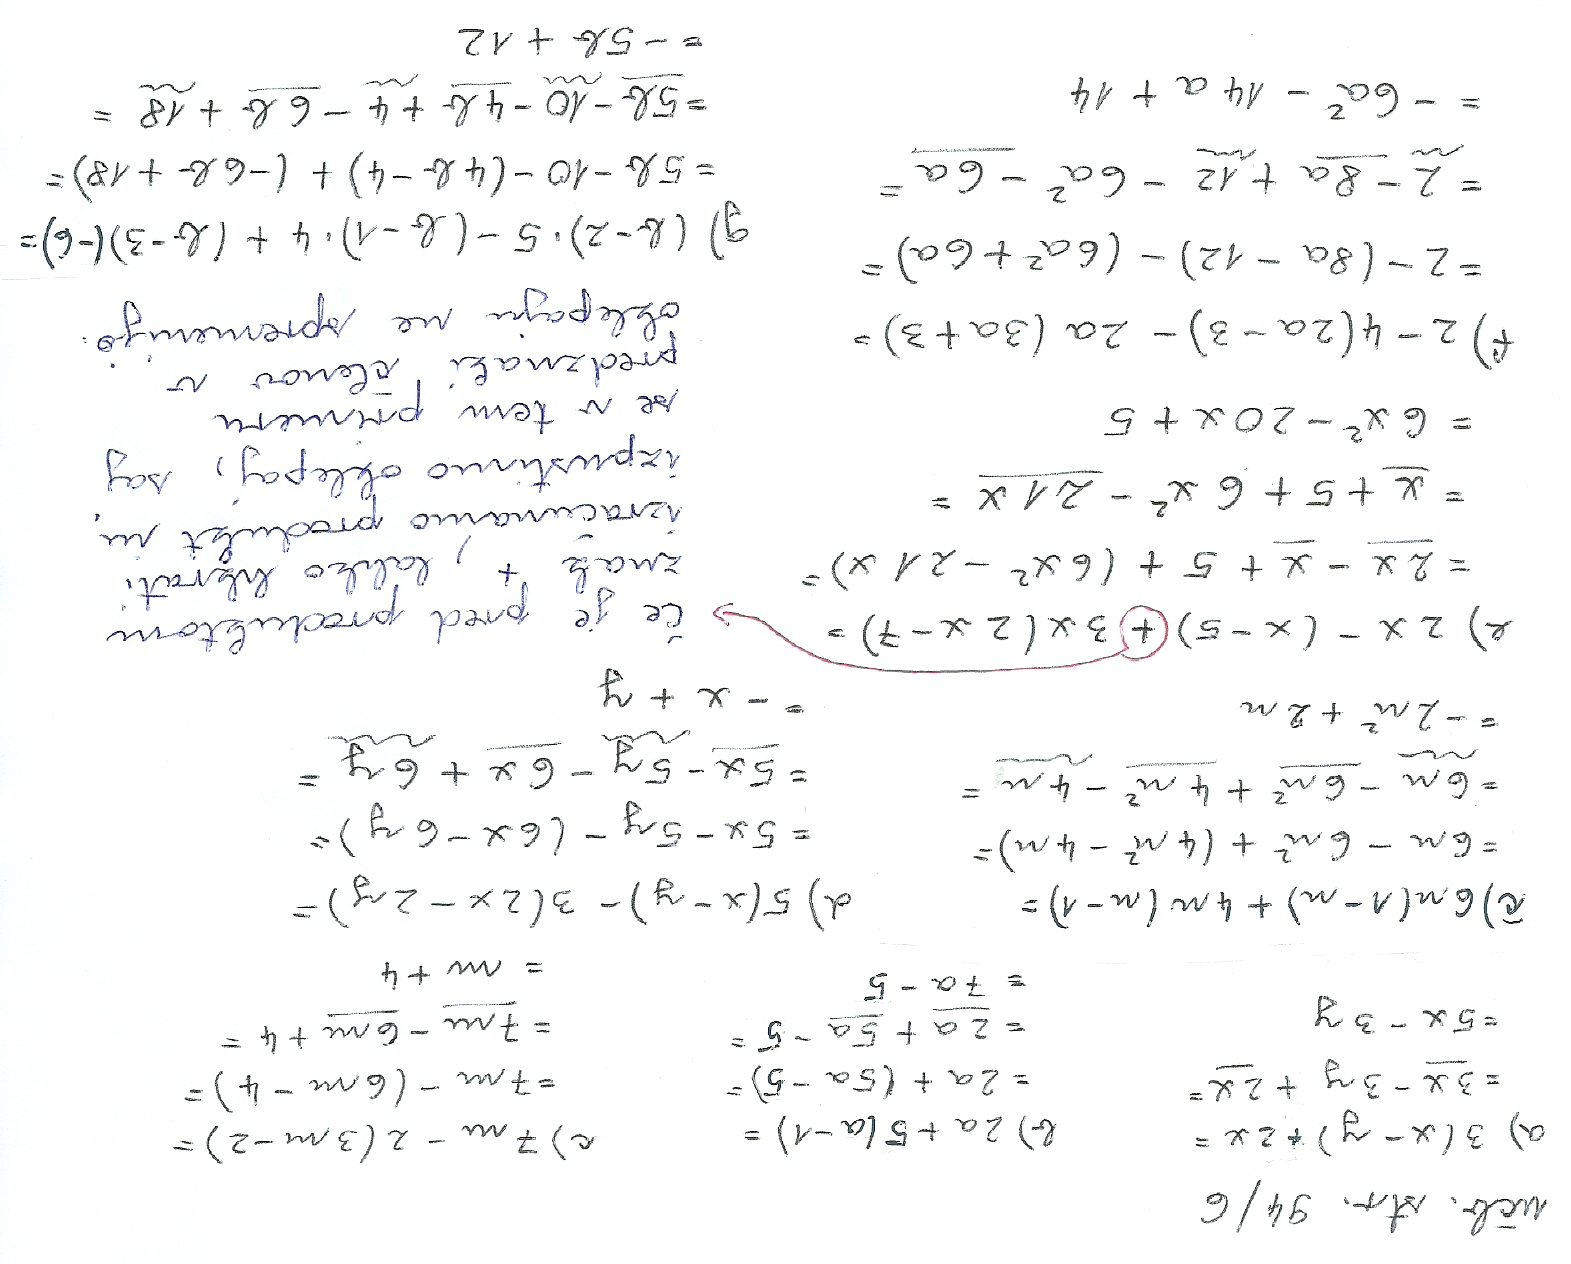 učb. str. 94/6
a) 3(x-y)+2x=
=3x-3y+2x=
=5x-3y
b) 2a+5(a-1)=
=2a+(5a-5)=
=2a+5a-5=
=7a-5
c) 7m-2(3m-2)=
=7m-(6m-4)=
=7m-6m+4=
=m+4
č) 6n(1-n)+4n(n-1)=
=6n-6n²+(4n²-4n)=
=6n-6n²+4n²-4n=
=-2n²+2n
d) 5(x-y)-3(2x-2y)=
=5x-5y-(6x-6y)=
=5x-5y-6x+6y=
=-x+y
e) 2x-(x-5)+3x(2x-7)=
=2x-x+5+(6x²-21x)=
=x+5+6x²-21x=
=6x²-20x+5
če je pred produktom
znak +, lahko hkrati
izračunamo produkt in
izpustimo oklepaj, saj
se v tem primeru
predznaki členov v
oklepaju ne spremenijo.
f) 2-4(2a-3)-2a(3a+3)=
=2-(8a-12)-(6a²+6a)=
=2-8a+12-6a²-6a=
=-6a²-14a+14
g) (b-2)·5-(b-1)·4+(b-3)(-6)=
=5b-10-(4b-4)+(-6b+18)=
=5b-10-4b+4-6b+18=
=-5b+12